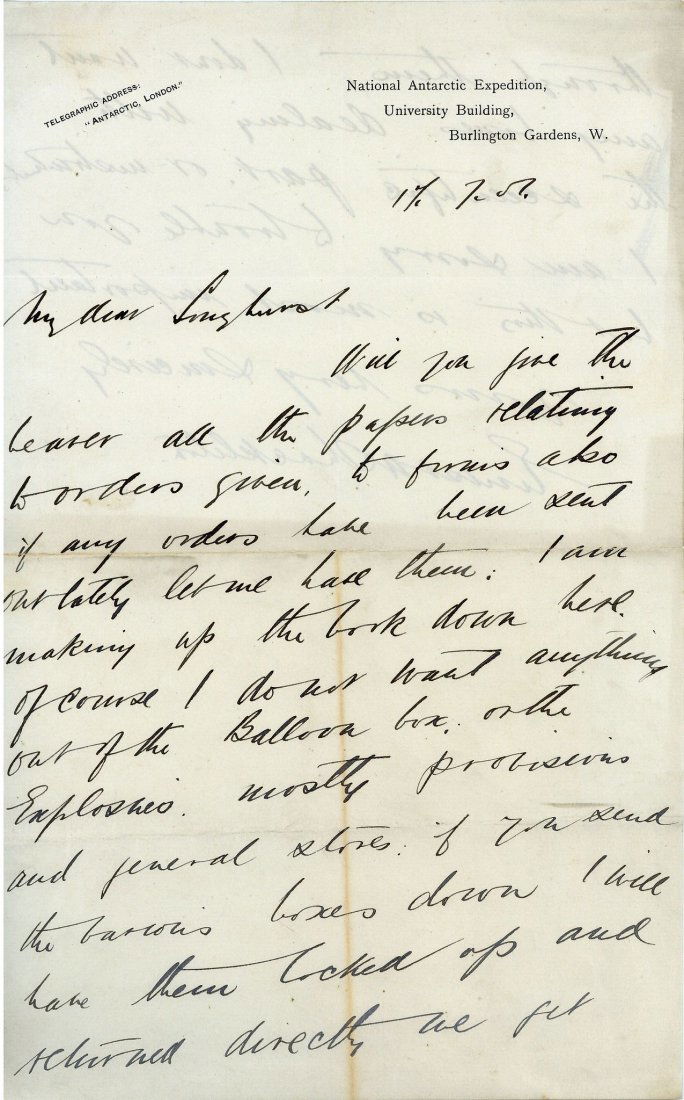 TELEGRAPHIC ADDRESS:
"ANTARCTIC, LONDON."
National Antarctic Expedition,
University Building,
Burlington Gardens, W.
17. 7. 01.
My dear Longhurst
Will you give the
bearer all the papers relating
to orders given, to firms also
if any orders have been sent
out lately let me have them: I am
making up the book down here.
of course I do not want anything
out of the Balloon box, or the
Explosives. mostly provisions
and general stores. if you send
the various boxes down I will
have them locked up and
returned directly we get